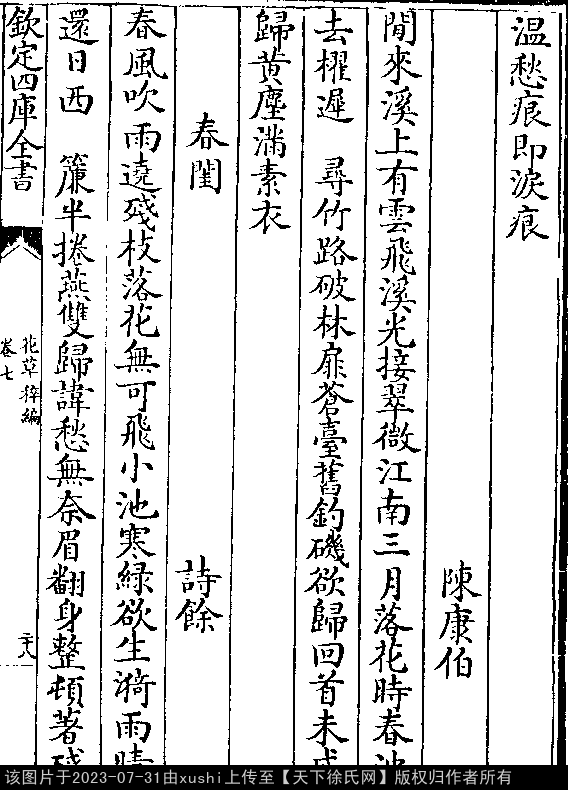 温愁痕即淚痕
陳康伯
閒來溪上有雲飛溪光接翠微江南三月落花時春
去櫂遲　尋竹路破林扉蒼臺舊釣磯欲歸回首未
歸黄塵滿素衣
春閨　詩餘
春風吹雨遶殘枝落花無可飛小池寒緑欲生漪雨晴
還日西　簾半捲燕雙歸諱愁無奈眉翻身整頓著
欽定四庫全書
花草稡編
卷七
二十八
该图片于2023-07-31由xushi上传至【天下徐氏网】版权归作者所有